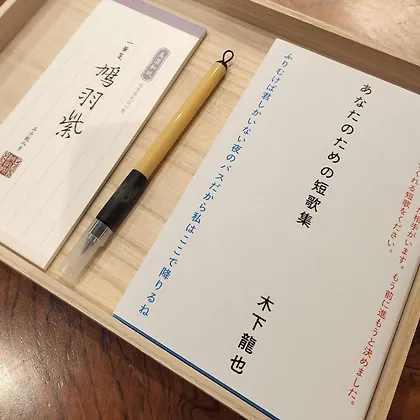 相手がいます。もう前に進もうと決めました。
くれる短歌をください。
あなたのための短歌集
木下龍也
ふりむけば君しかいない夜のバスだから私はここで降りるね
一筆箋
鳩羽紫